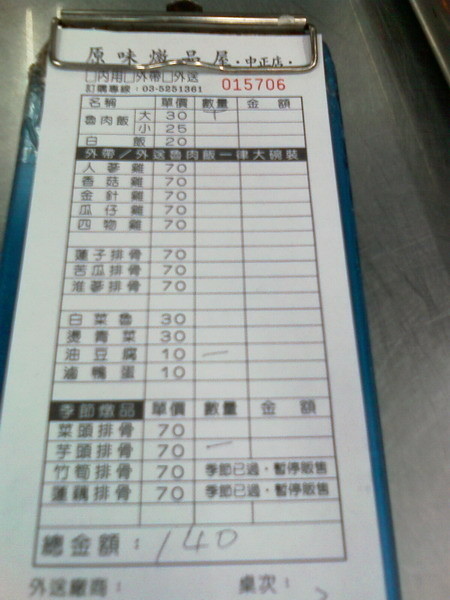 原味燉品屋·中正店·
□內用□外帶□外送
訂購專線：03-5251361 015706
名稱 單價 數量 金額
魯肉飯 大 30
小 25
白飯 20
外帶/外送魯肉飯一律大碗裝
人蔘雞 70
香菇雞 70
金針雞 70
瓜仔雞 70
四物雞 70
蓮子排骨 70
苦瓜排骨 70
淮蔘排骨 70
白菜魯 30
燙青菜 30
油豆腐 10 一
滷鴨蛋 10
季節燉品 單價 數量 金額
菜頭排骨 70
芋頭排骨 70 一
竹筍排骨 70 季節已過·暫停販售
蓮藕排骨 70 季節已過·暫停販售
總金額：140
外送廠商： 桌次：